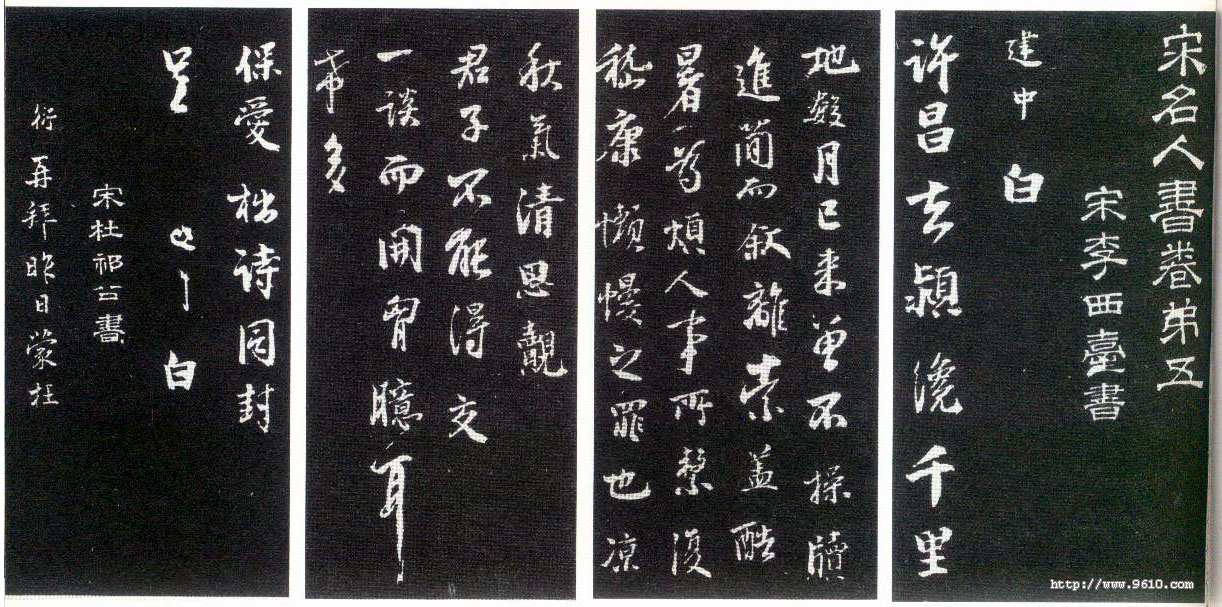 宋名人書卷弟五
宋李西臺書
建中白
許昌去潁纔千里
地數月已来曾不操牘
進簡而叙離索蓋酷
暑煩人事所繫復
嵇康懶慢之罪也凉
秋氣清思覿
君子不能得交
一談而開胷臆耳
希多
保愛拙詩同封
呈白
宋杜祁公書
衍再拜昨日蒙枉
http://www.9610.com